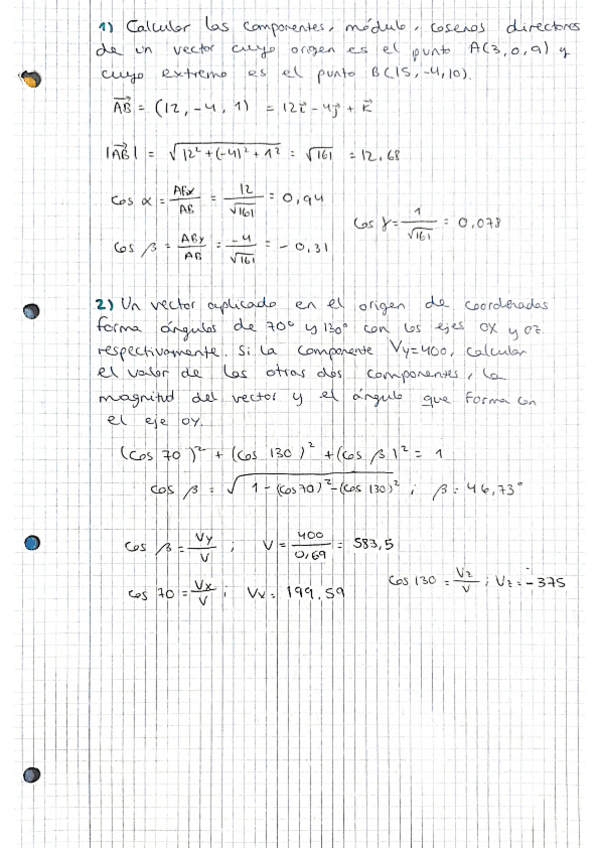 1) Calcular las componentes, módulo, cosenos directores
de un vector cuyo origen es el punto A(3,0,9) y
cuyo extremo es el punto B(15,-4,10).
AB⃗ = (12, -4, 1) = 12i⃗ - 4j⃗ + k⃗
|AB⃗| = √(12² + (-4)² + 1²) = √161 = 12,68
cos α = ABx/AB = 12/√161 = 0,94
cos γ = 1/√161 = 0,078
cos β = ABy/AB = -4/√161 = -0,31
2) Un vector aplicado en el origen de coordenadas
forma ángulos de 70° y 130° con los ejes OX y OZ
respectivamente. Si la componente Vy=400, calcular
el valor de las otras dos componentes, la
magnitud del vector y el ángulo que forma con
el eje OY.
(cos 70)² + (cos 130)² + (cos β)² = 1
cos β = √(1-(cos 70)²-(cos 130)²) ; β = 46,73°
cos β = Vy/V ; V = 400/0,69 = 583,5
cos 70 = Vx/V ; Vx = 199,59
cos 130 = Vz/V ; Vz = -375